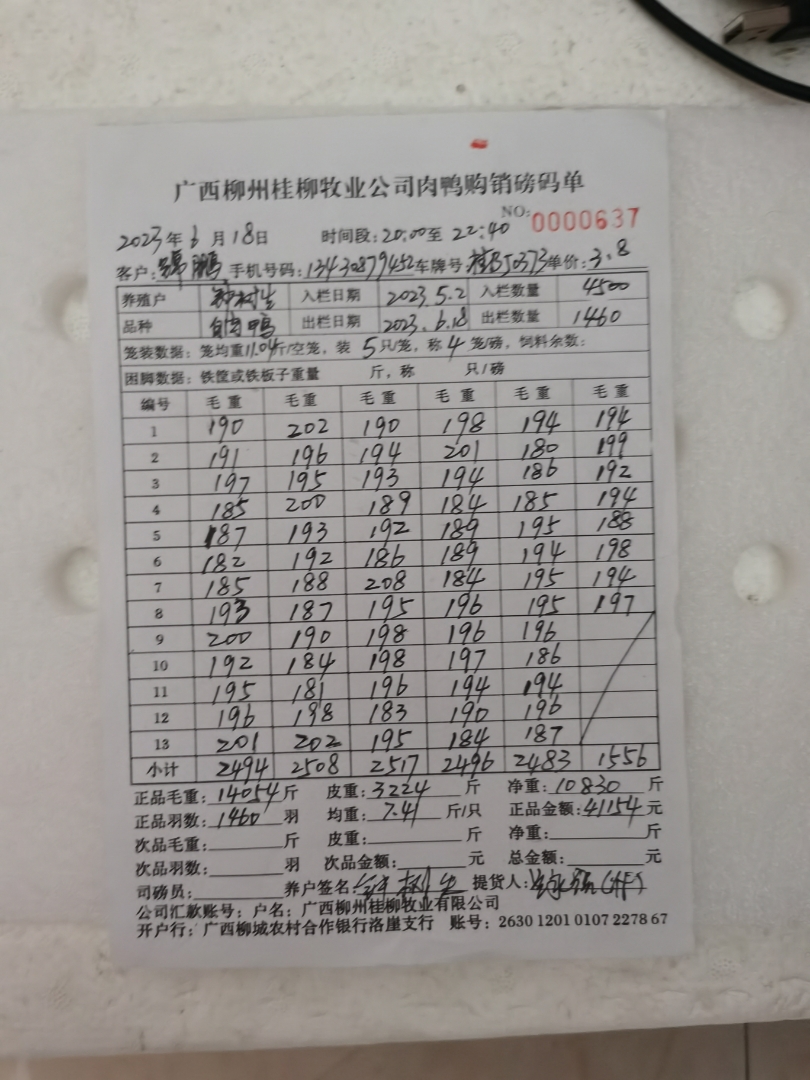 广西柳州桂柳牧业公司肉鸭购销磅码单
NO: 0000637
2023年6月18日 时间段: 20:00至 22:40
客户: 鹏 手机号码: 13430879452 车牌号 J0373 单价: 3.8
养殖户 村生 入栏日期 2023.5.2 入栏数量 4500
品种 肉鸭 出栏日期 2023.6.18 出栏数量 1460
笼装数据: 笼均重11.04斤/空笼, 装 5只/笼, 称 4 笼/磅, 饲料余数:
困脚数据: 铁筐或铁板子重量 斤, 称 只/磅
编号 毛重 毛重 毛重 毛重 毛重 毛重
1 190 202 190 198 194 194
2 191 196 194 201 180 199
3 197 195 193 194 186 192
4 185 200 189 184 185 194
5 187 193 192 189 195 188
6 182 192 186 189 194 198
7 185 188 208 184 195 194
8 193 187 195 196 195 197
9 200 190 198 196 196
10 192 184 198 197 186
11 195 181 196 194 194
12 196 198 183 190 196
13 201 202 195 184 187
小计 2494 2508 2517 2496 2483 1556
正品毛重: 14054斤 皮重: 3224 斤 净重: 10830 斤
正品羽数: 1460 羽 均重: 7.41 斤/只 正品金额: 41154元
次品毛重: 斤 皮重: 斤 净重: 斤
次品羽数: 羽 次品金额: 元 总金额: 元
司磅员: 养户签名: 树生 提货人:
公司汇款账号: 户名: 广西柳州桂柳牧业有限公司
开户行: 广西柳城农村合作银行洛崖支行 账号: 2630 1201 0107 2278 67